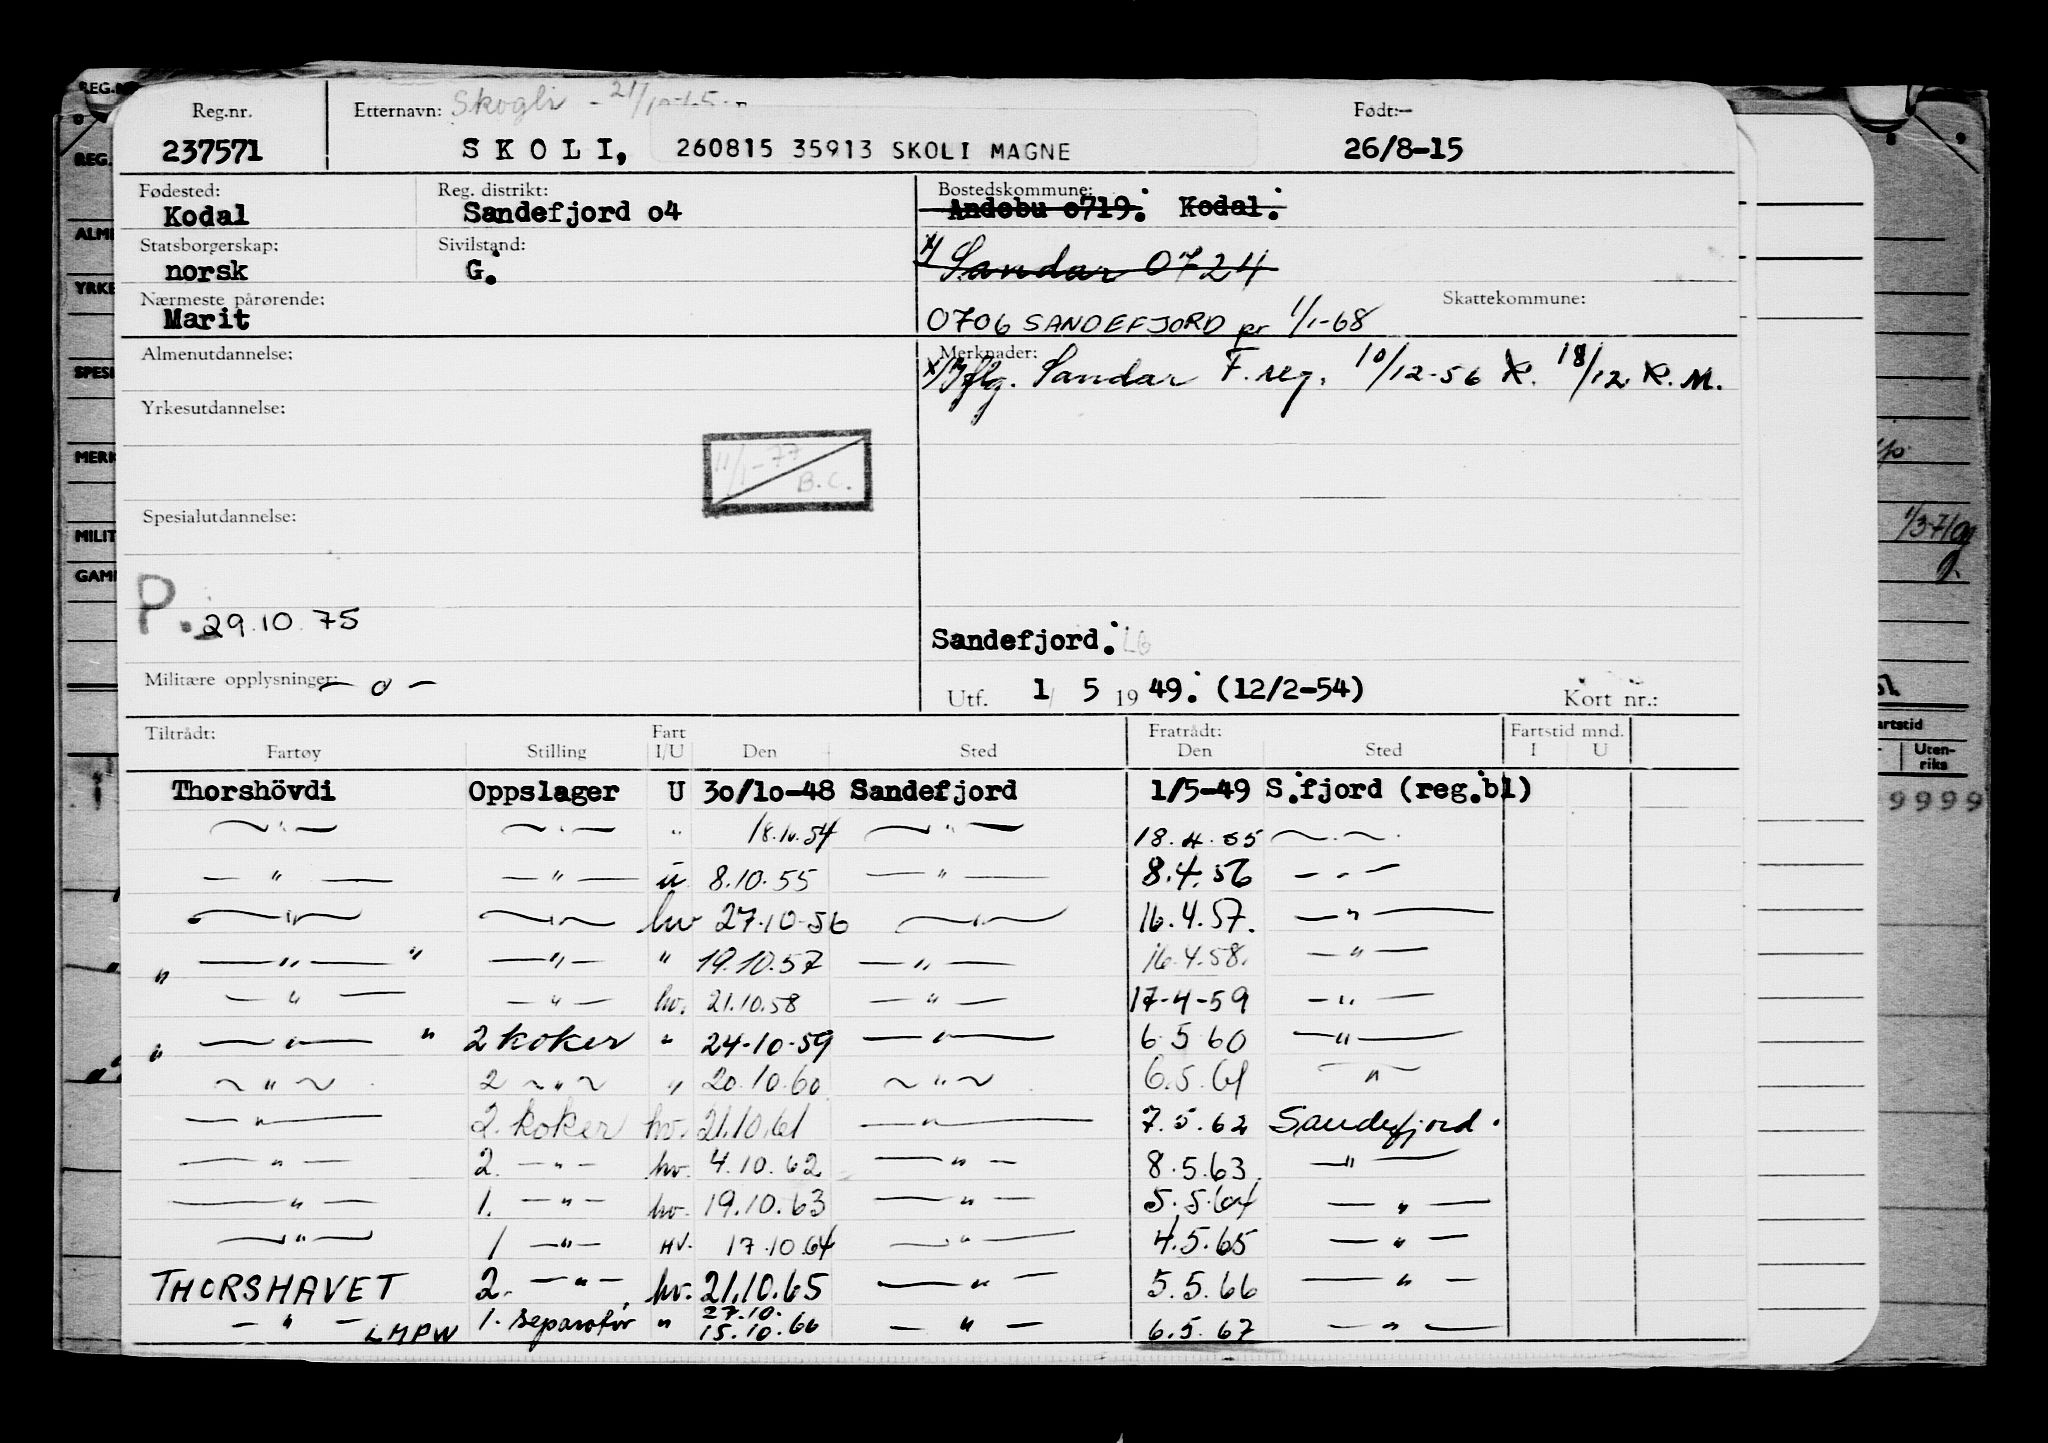 Reg.nr. Etternavn: Skogli - 21/ Født:—
237571 S K O L I, 260815 35913 SKOLI MAGNE 26/8-15
Fødested: Reg. distrikt: Bostedskommune:
Kodal Sandefjord o4 Andebu o719. Kodal.
Statsborgerskap: Sivilstand: x/ Sandar 0724
norsk G.
Nærmeste pårørende: Skattekommune:
Marit 0706 SANDEFJORD pr 1/1-68
Almenutdannelse: Merknader:
x/ Iflg. Sandar F.reg. 10/12-56 K. 18/12 K.M.
Yrkesutdannelse:
11/1-77
B.C.
Spesialutdannelse:
P. 29.10.75
Sandefjord. LG
Militære opplysninger: — o — Utf. 1 5 19 49. (12/2-54) Kort nr.:
Tiltrådt: Fart Fratrådt: Fartstid mnd.
Fartøy Stilling I/U Den Sted Den Sted I U
Thorshövdi Oppslager U 3o/1o-48 Sandefjord 1/5-49 S.fjord (reg.bl)
— " — — " — " 18.10.54 — " — 18.4.55 — " —
— " — — " — u 8.10.55 — " — 8.4.56 — " —
— " — — " — hv 27.10-56 — " — 16.4.57. — " —
" — " — " — " — " 19.10.57 — " — 16.4.58. — " —
— " — — " — hv. 21.10.58 — " — 17-4-59 — " —
" — " — " 2 koker " 24-10-59 — " — 6.5.60 — " —
— " — 2 — " — " 20.10.60 — " — 6.5.61 — " —
— " — 2. koker hv. 21.10.61 — " — 7.5.62 Sandefjord.
— " — 2. — " — hv. 4.10.62 — " — 8.5.63. — " —
— " — 1. — " — hv. 19.10.63 — " — 5.5.64 — " —
— " — 1 — " — HV. 17.10.64 — " — 4.5.65 — " —
THORSHAVET 2. — " — hv. 21.10.65 — " — 5.5.66 — " —
27.10.
— " — LMPW 1. separatør " 15.10.66 — " — 6.5.67 — " —
REG.
ALM
YRKE
SPESI
MERK
MILIT
GAM
1/3-71
artstid
Uten-
riks
9999